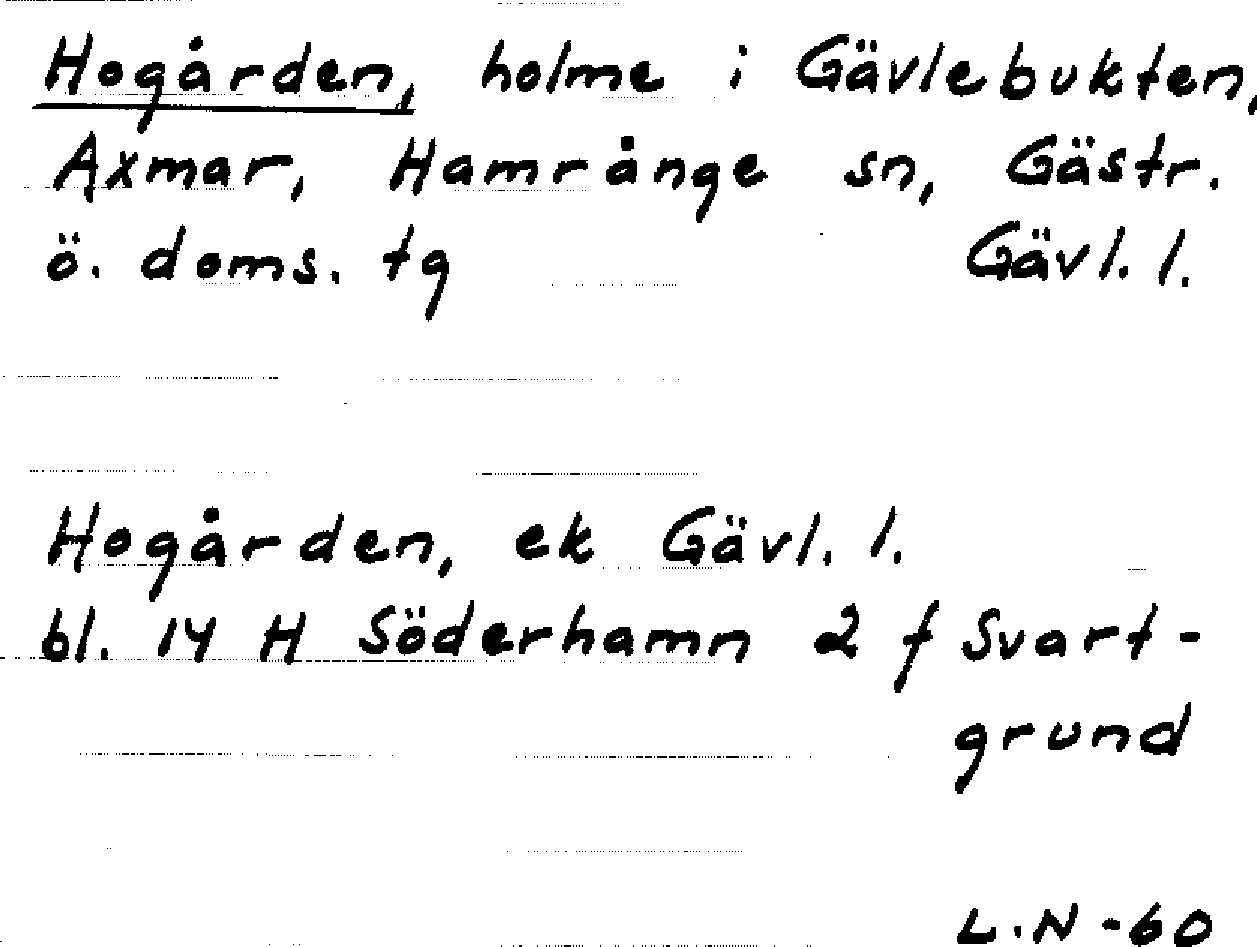 Hogården, holme i Gävlebukten,
Axmar, Hamrånge sn, Gästr.
ö. doms. tg Gävl. l.
Hogården, ek Gävl. l.
bl. 14 H Söderhamn 2 f Svart-
grund
L.N -60